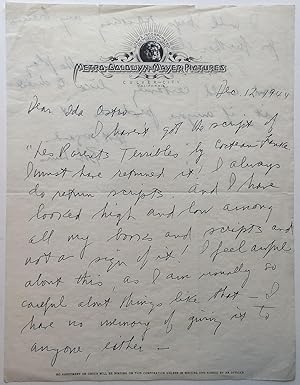 METRO-GOLDWYN-MAYER PICTURES
CULVER CITY
CALIFORNIA
Dec. 12 - 1944
Dear Ida
I haven't got the script of
"Les Parents Terribles" by
I must have returned it! I always
do return scripts. And I have
looked high and low among
all my books and scripts and
not a sign of it! I feel awful
about this, as I am usually so
careful about things like that — I
have no memory of giving it to
anyone, either —
NO AGREEMENT OR ORDER WILL BE BINDING ON THIS CORPORATION UNLESS IN WRITING AND SIGNED BY AN OFFICER